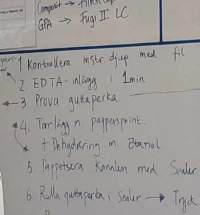 GPA → Fugi II LC
1 Kontrollera mstr djup med fil
2 EDTA-inlägg i 1min
3 Prova guttaperka
4. Torrlägg m papperspoint.
+ Dehydrering m Etanol
5 Tappetsera Kanalen med Sealer
6 Rulla guttaperka i Sealer → Tryck